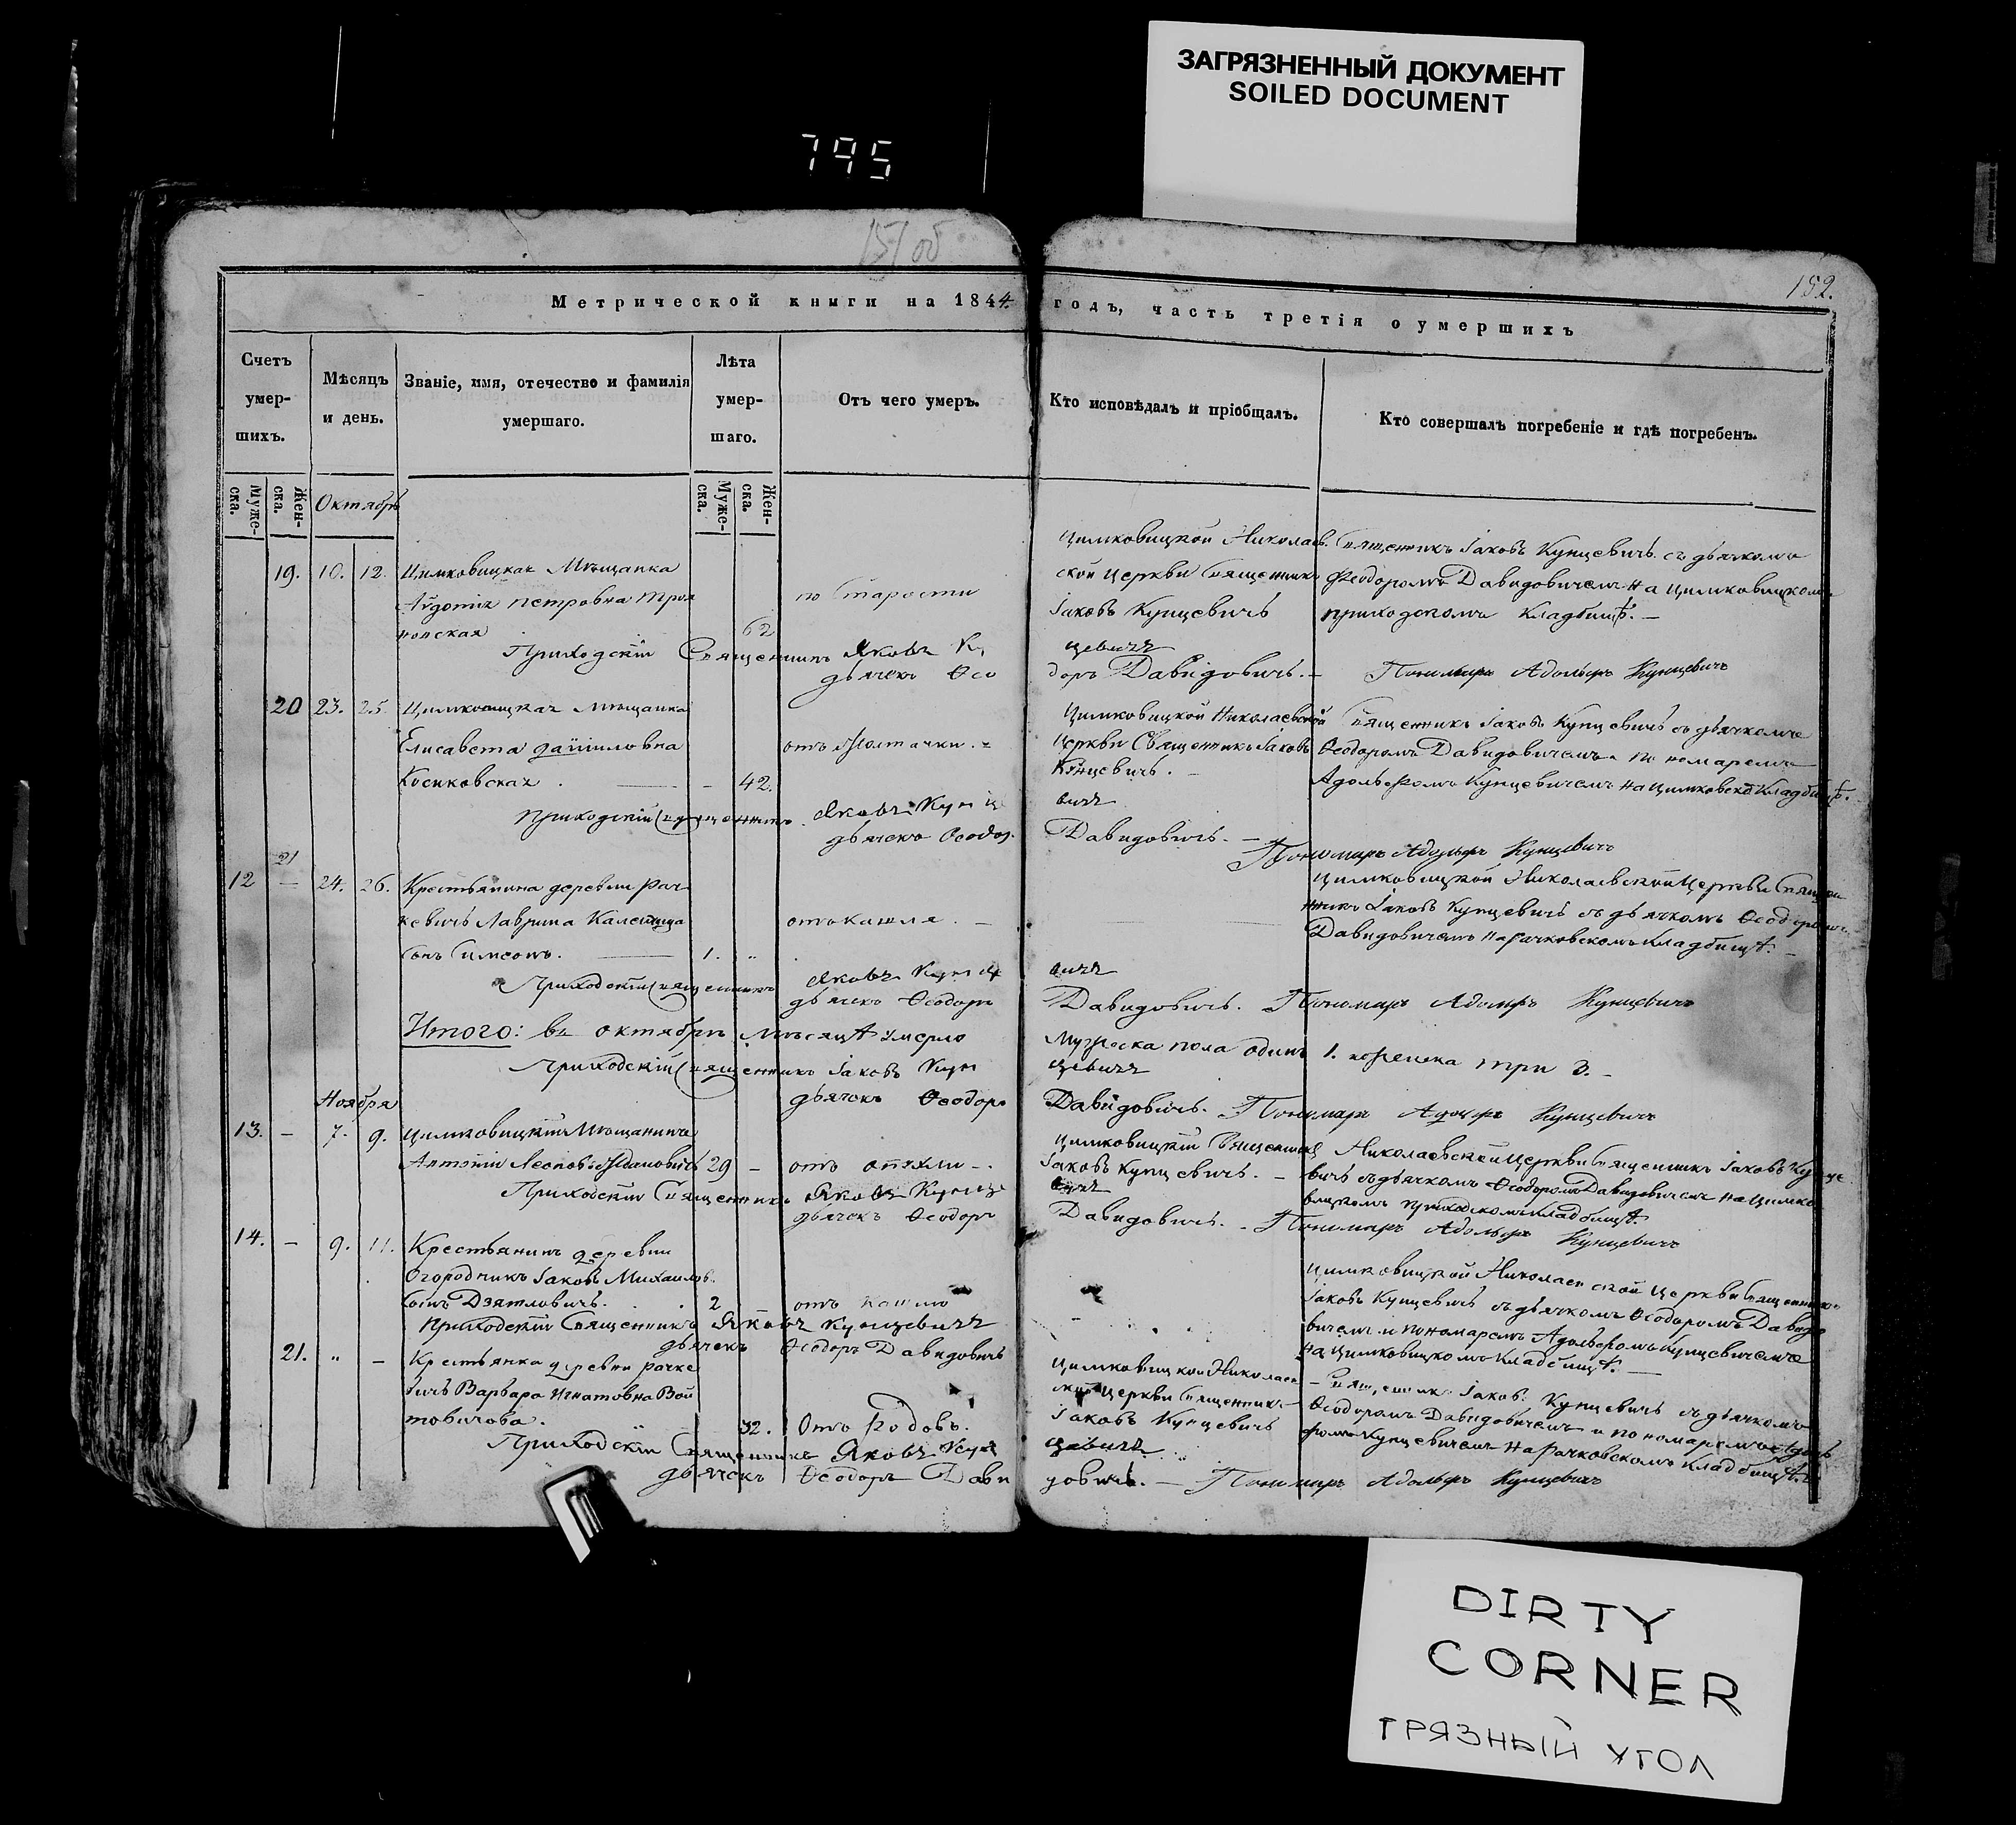 ЗАГРЯЗНЕННЫЙ ДОКУМЕНТ
SOILED DOCUMENT
795
151 об
152.
Метрической книги на 1844 годъ, часть третія о умершихъ
Счетъ умер-шихъ.
Мѣсяцъ и день.
Званіе, имя, отечество и фамилія умершаго.
Лѣта умер-шаго.
Отъ чего умеръ.
Кто исповѣдалъ и пріобщалъ.
Кто совершалъ погребеніе и гдѣ погребенъ.
Муже-ска.
Жен-ска.
Октябрь
Муже-ска.
Жен-ска.
19. 10. 12. Цимковицкая Мѣщанка
Петровна
62
по старости
Цимковицкой Николаев.
ской Церкви Священникъ
Іаковъ Кунцевичъ
Священникъ Іаковъ Кунцевичъ съ дьячкомъ
Феодоромъ Давидовичемъ на Цимковицкомъ
приходскомъ кладбищѣ. —
Приходскій Священникъ Яковъ Кунцевичъ
дьячекъ Ѳеодоръ Давидовичъ. — Пономаръ Адольфъ Кунцевичъ
20 23. 25. Цимковицкая Мѣщанка
Елисавета Даніиловна
Косиковская. — 42.
отъ
Цимковицкой Николаевской
Церкви Священникъ Іаковъ
Кунцевичъ. —
Священникъ Іаковъ Кунцевичъ съ дьячкомъ
Ѳеодоромъ Давидовичемъ пономаремъ
Адольфомъ Кунцевичемъ на кладбищѣ.
Приходскій Священникъ Яковъ Кунцевичъ
дьячекъ Ѳеодоръ Давидовичъ. —
Пономаръ Адольфъ Кунцевичъ
21
12 — 24. 26. Крестьянина деревни Рач-
кевичъ Лаврина
сынъ Симеонъ. — 1. „
отъ кашля. —
Цимковицкой Николаевской Церкви Священ
никъ Іаковъ Кунцевичъ съ дьячкомъ Ѳеодоромъ
Давидовичемъ на Рачковскомъ кладбищѣ. —
Приходскій Священникъ Яковъ Кунцевичъ
дьячекъ Ѳеодоръ Давидовичъ. Пономаръ Адольфъ Кунцевичъ
Итого: въ октябрѣ мѣсяцѣ умерло Мужеска пола одинъ 1. женска три 3. —
Приходскій Священникъ Іаковъ Кунцевичъ
дьячекъ Ѳеодоръ Давидовичъ. Пономаръ Адольфъ Кунцевичъ
Ноября
13. — 7. 9. Цимковицкій Мѣщанинъ
Антоній 29 —
отъ опухли —.
Цимковицкій Священникъ
Іаковъ Кунцевичъ. —
Николаевской Церкви Священникъ Іаковъ Кунце
вичъ съ дьячкомъ Ѳеодоромъ Давидовичемъ на Цимко
вицкомъ приходскомъ кладбищѣ.
Приходскій Священникъ Яковъ Кунцевичъ
дьячекъ Ѳеодоръ Давидовичъ. — Пономаръ Адольфъ Кунцевичъ
14. — 9. 11. Крестьянинъ деревни
Огородникъ Іаковъ Михаилов.
сынъ Дзятловичъ. 2
отъ кашлю
Цимковицкой Николаевской Церкви Священникъ
Іаковъ Кунцевичъ съ дьячкомъ Ѳеодоромъ Давидо
вичемъ и пономаремъ Адольфомъ Кунцевичемъ
на Цимковицкомъ кладбищѣ. —
Приходскій Священникъ Яковъ Кунцевичъ
дьячекъ Ѳеодоръ Давидовичъ
21. „ — Крестьянка деревни Рачке
вичъ Варвара Игнатовна Вой
товичова. 32.
Отъ родовъ.
Цимковицкой Николаев
ской Церкви Священникъ
Іаковъ Кунцевичъ
— Священникъ Іаковъ Кунцевичъ съ дьячкомъ
Ѳеодоромъ Давидовичемъ и пономаремъ Адоль
фомъ Кунцевичемъ на Рачковскомъ кладбищѣ.
Приходскій Священникъ Яковъ Кунцевичъ
дьячекъ Ѳеодоръ Давидовичъ. — Пономаръ Адольфъ Кунцевичъ
DIRTY
CORNER
ГРЯЗНЫЙ УГОЛ